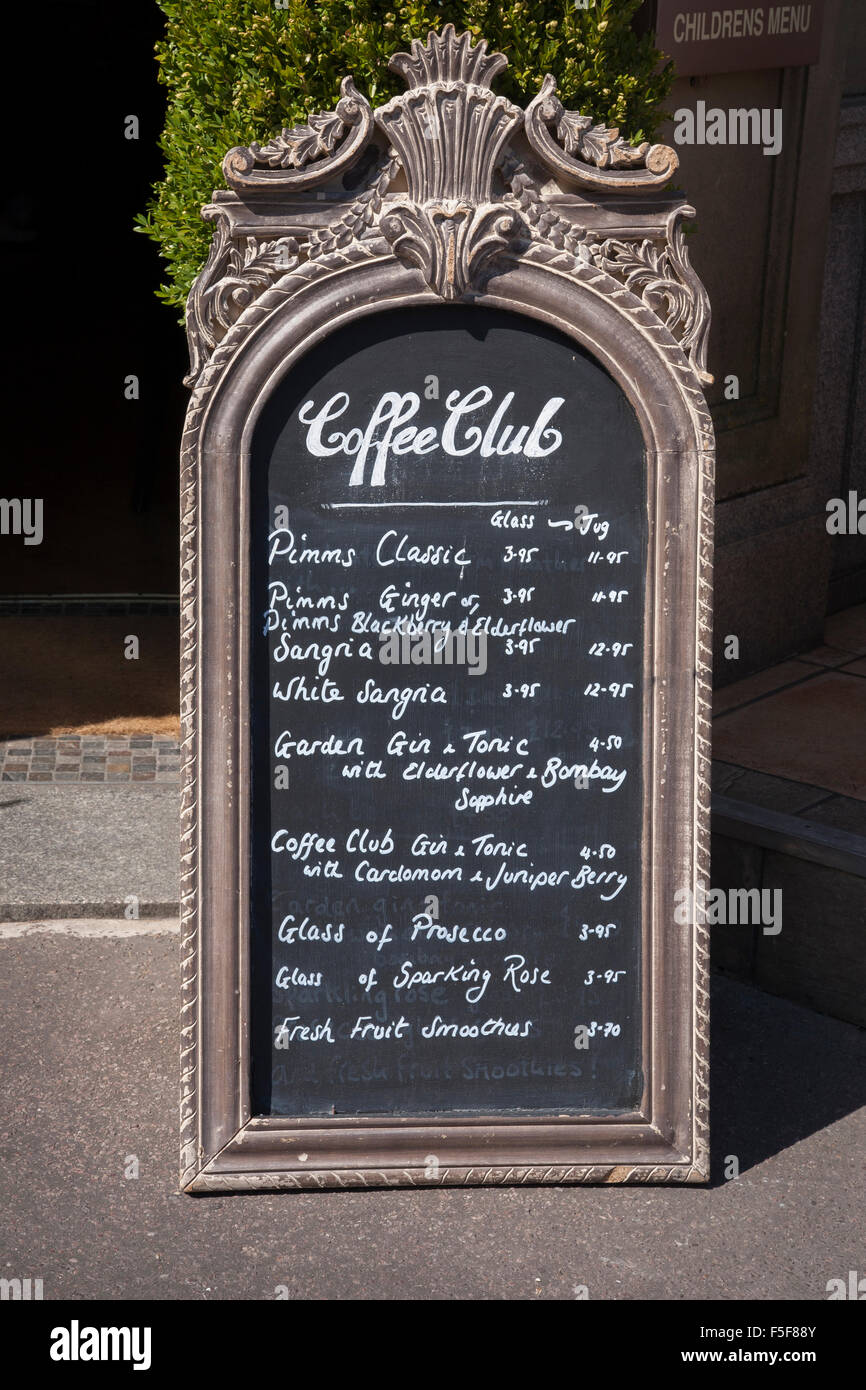 CHILDRENS MENU
Coffee Club
Glass ~ Jug
Pimms Classic 3-95 11-95
Pimms Ginger or, 3-95 11-95
Pimms Blackberry & Elderflower
Sangria 3-95 12-95
White Sangria 3-95 12-95
Garden Gin & Tonic 4-50
with Elderflower & Bombay
Sapphire
Coffee Club Gin & Tonic 4-50
with Cardomom & Juniper Berry
Glass of Prosecco 3-95
Glass of Sparking Rose 3-95
Fresh Fruit Smoothus 3-70
and fresh fruit smoothies!
alamy
Image ID: F5F88Y
www.alamy.com